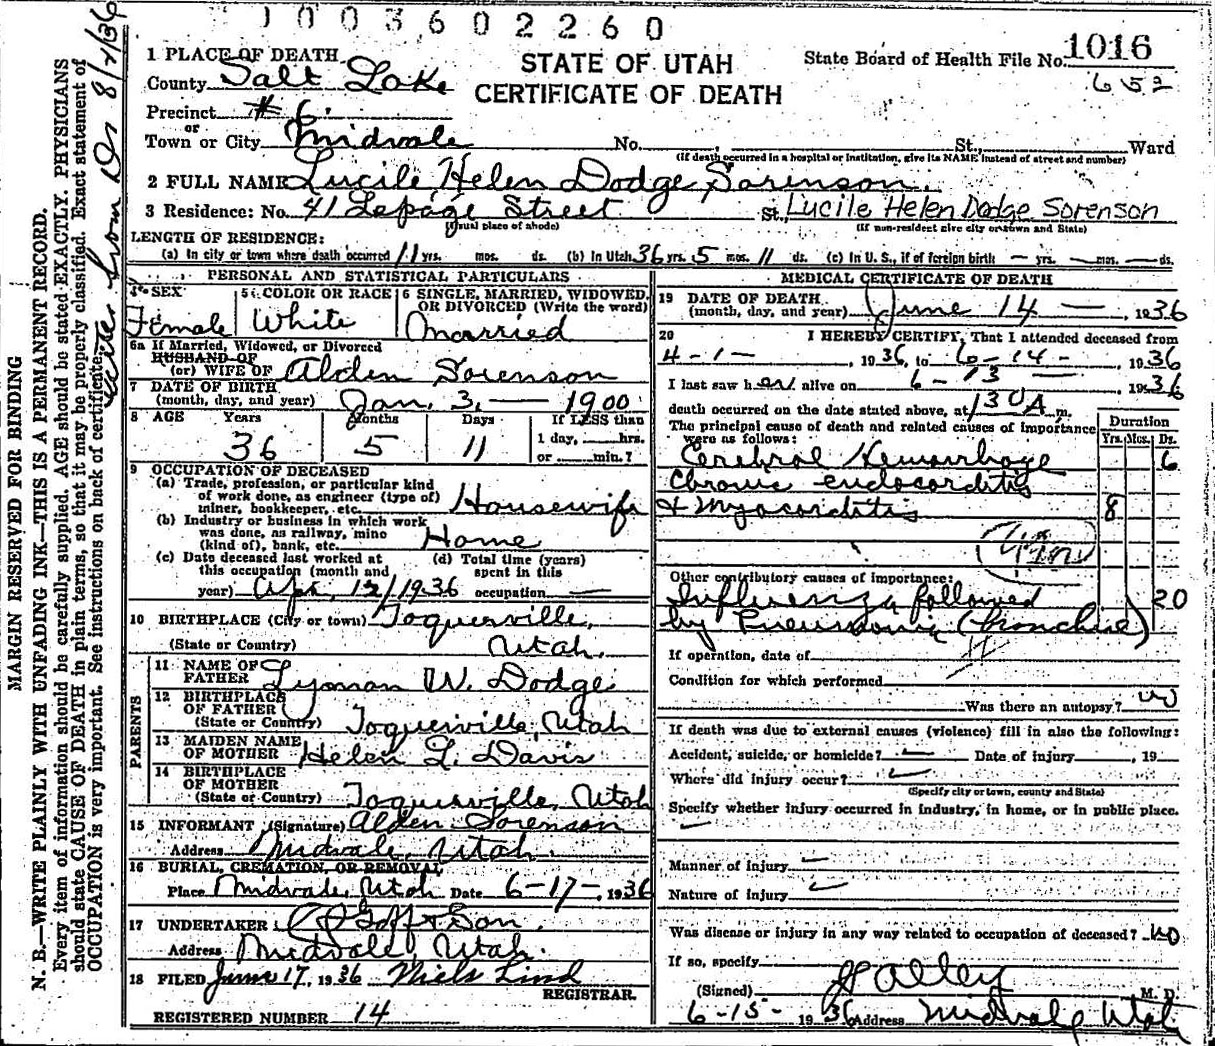 1003602260
1 PLACE OF DEATH
STATE OF UTAH
CERTIFICATE OF DEATH
State Board of Health File No. 1016
652
County Salt Lake
Precinct # 6
or
Town or City Midvale No. St., Ward
(If death occurred in a hospital or institution, give its NAME instead of street and number)
2 FULL NAME Lucile Helen Dodge Sorenson.
3 Residence: No. 41 Lepage Street St. Lucile Helen Dodge Sorenson
(Usual place of abode) (If non-resident give city or town and State)
LENGTH OF RESIDENCE:
(a) In city or town where death occurred 11 yrs. mos. ds. (b) In Utah 36 yrs. 5 mos. 11 ds. (c) In U. S., if of foreign birth — yrs. — mos. — ds.
PERSONAL AND STATISTICAL PARTICULARS
4 SEX Female
5 COLOR OR RACE White
6 SINGLE, MARRIED, WIDOWED, OR DIVORCED (Write the word) Married
6a If Married, Widowed, or Divorced
HUSBAND OF
(or) WIFE OF Alden Sorenson
7 DATE OF BIRTH
(month, day, and year) Jan. 3, — 1900
8 AGE Years 36 Months 5 Days 11 If LESS than
1 day, hrs.
or min.?
9 OCCUPATION OF DECEASED
(a) Trade, profession, or particular kind
of work done, as engineer (type of)
miner, bookkeeper, etc. Housewife
(b) Industry or business in which work
was done, as railway, mine
(kind of), bank, etc. Home
(c) Date deceased last worked at
this occupation (month and
year) Apr. 12/1936
(d) Total time (years)
spent in this
occupation —
10 BIRTHPLACE (City or town) Toquerville,
(State or Country) Utah.
PARENTS
11 NAME OF
FATHER Lyman W. Dodge
12 BIRTHPLACE
OF FATHER
(State or Country) Toquerville, Utah
13 MAIDEN NAME
OF MOTHER Helen L. Davis
14 BIRTHPLACE
OF MOTHER
(State or Country) Toquerville, Utah
15 INFORMANT (Signature) Alden Sorenson
Address Midvale, Utah.
16 BURIAL, CREMATION, OR REMOVAL
Place Midvale, Utah Date 6-17-, 1936
17 UNDERTAKER Goff & Son
Address Midvale, Utah.
18 FILED June 17, 1936 Niels Lind
REGISTRAR.
REGISTERED NUMBER 14
MEDICAL CERTIFICATE OF DEATH
19 DATE OF DEATH
(month, day, and year) June 14 — , 1936
20 I HEREBY CERTIFY, That I attended deceased from
4-1- , 1936, to 6-14- , 1936
I last saw her alive on 6-13 — , 1936
death occurred on the date stated above, at 130A m.
The principal cause of death and related causes of importance
were as follows:
Duration
Yrs. Mos. Ds.
Cerebral Hemorrhage 6
Chronic endocorditis
& Myocorditis 8
Other contributory causes of importance:
Influenza followed 20
by Pneumonia (bronchial)
If operation, date of
Condition for which performed
Was there an autopsy? no
If death was due to external causes (violence) fill in also the following:
Accident, suicide, or homicide? Date of injury , 19
Where did injury occur?
(Specify city or town, county and State)
Specify whether injury occurred in industry, in home, or in public place.
Manner of injury
Nature of injury
Was disease or injury in any way related to occupation of deceased? no
If so, specify
(Signed) Alley M. D.
6-15- 1936 Address Midvale Utah
MARGIN RESERVED FOR BINDING
N. B.—WRITE PLAINLY WITH UNFADING INK—THIS IS A PERMANENT RECORD.
Every item of information should be carefully supplied. AGE should be stated EXACTLY. PHYSICIANS
should state CAUSE OF DEATH in plain terms, so that it may be properly classified. Exact statement of
OCCUPATION is very important. See instructions on back of certificate.
Letter from Dr 8/4/36